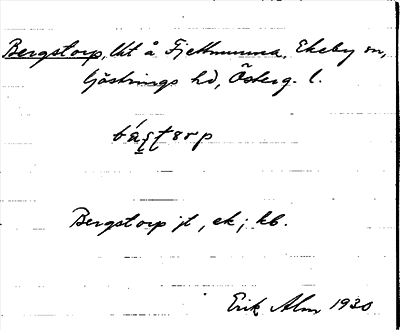 Bergstorp, lht å Fjettmunna, Ekeby sn,
Göstrings hd, Österg. l.
Bergstorp jt, ek; kb.
Erik Alm 1930